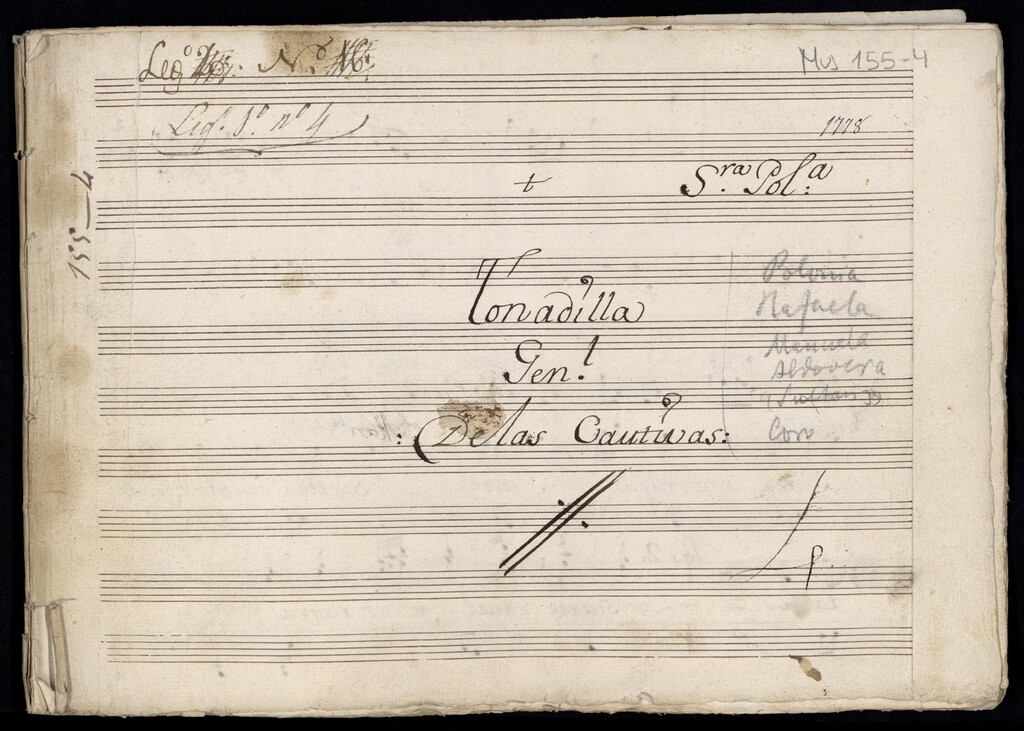 Leg.º Nº
Mus 155-4
Leg.º 1º nº 4
1778
155-4
t
S.ra Pol.a
Tonadilla
Gen.l
: De las Cautivas:
Polonia
Rafaela
Manuela
Aldovera
(Sultan)
Coro
4